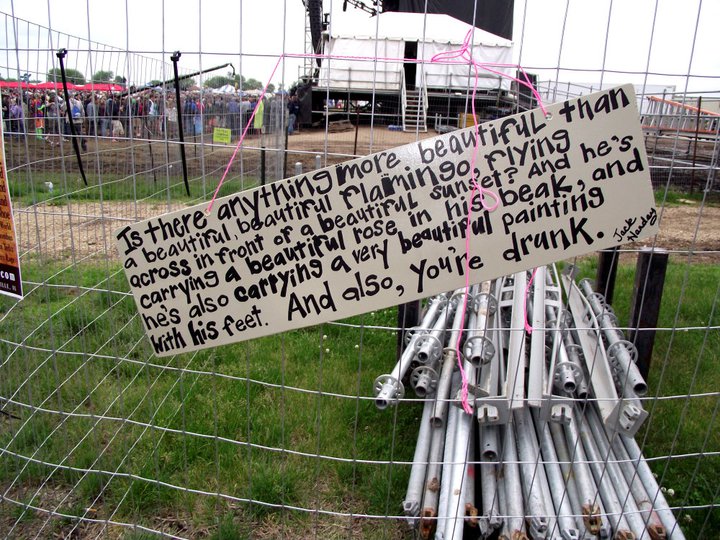 Is there anything more beautiful than
a beautiful, beautiful flamingo, flying
across in front of a beautiful sunset? And he's
carrying a beautiful rose in his beak, and
he's also carrying a very beautiful painting
with his feet. And also, you're drunk.
Jack
Handey
.com